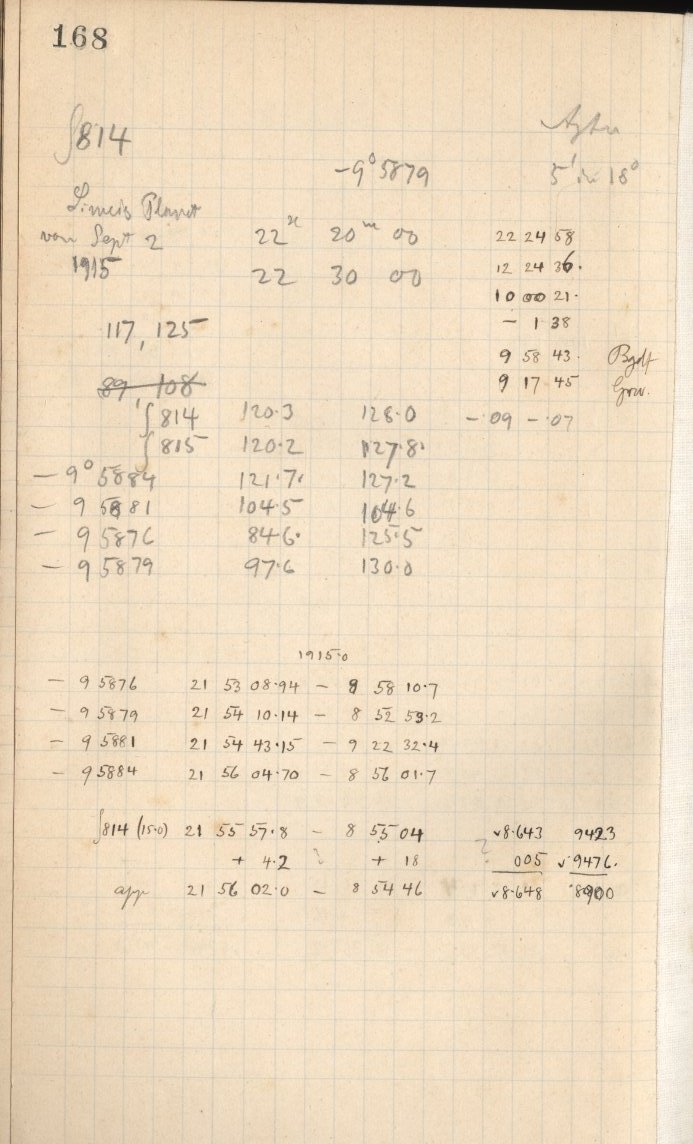 168
∫814
-9° 5879 5' in 18°
Planet
von Sept 2 22ʰ 20ᵐ 00 22 24 58
1915 22 30 00 12 24 36.
10 00 21.
117, 125 - 1 38
9 58 43.
89, 108 9 17 45 Grw.
∫814 120.3 128.0 -.09 -.07
∫815 120.2 127.8.
- 9° 5884 121.7. 127.2
- 9 5881 104.5 104.6
- 9 5876 84.6. 125.5
- 9 5879 97.6 130.0
1915.0
- 9 5876 21 53 08.94 - 8 58 10.7
- 9 5879 21 54 10.14 - 8 52 53.2
- 9 5881 21 54 43.15 - 9 22 32.4
- 9 5884 21 56 04.70 - 8 56 01.7
∫814 (15.0) 21 55 57.8 - 8 55 04 v8.643 9423
+ 4.2 ? + 18 ? 005 v.9476.
app 21 56 02.0 - 8 54 46 v8.648 .8900